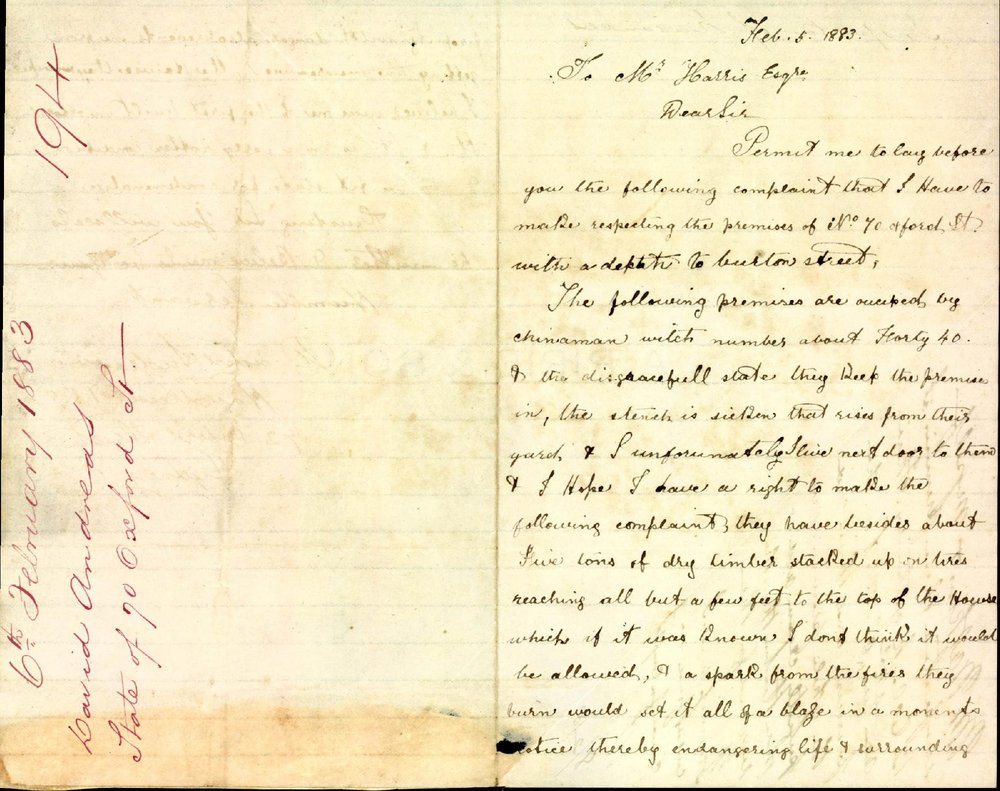 194
6th February 1883
David Andreas
State of 70 Oxford St
Feb. 5. 1883.
To Mr Harris Esqre
Dear Sir
Permit me to lay before
you the following complaint that I Have to
make respecting the premises of No 70 oxford St.
with a depth to burton street,
The following premises are occuped by
chinaman witch number about Forty 40.
& the disgracefull state they Keep the premise
in, the stench is sicken that rises from their
yard & I unforunately I live next door to them
& I Hope I have a right to make the
following complaint, they have besides about
Five tons of dry timber stacked up on tires
reaching all but a few feet to the top of the House
which if it was Known I dont think it would
be allowed, & a spark from the fires they
burn would set it all of a blaze in a moments
notice thereby endangering life & surrounding